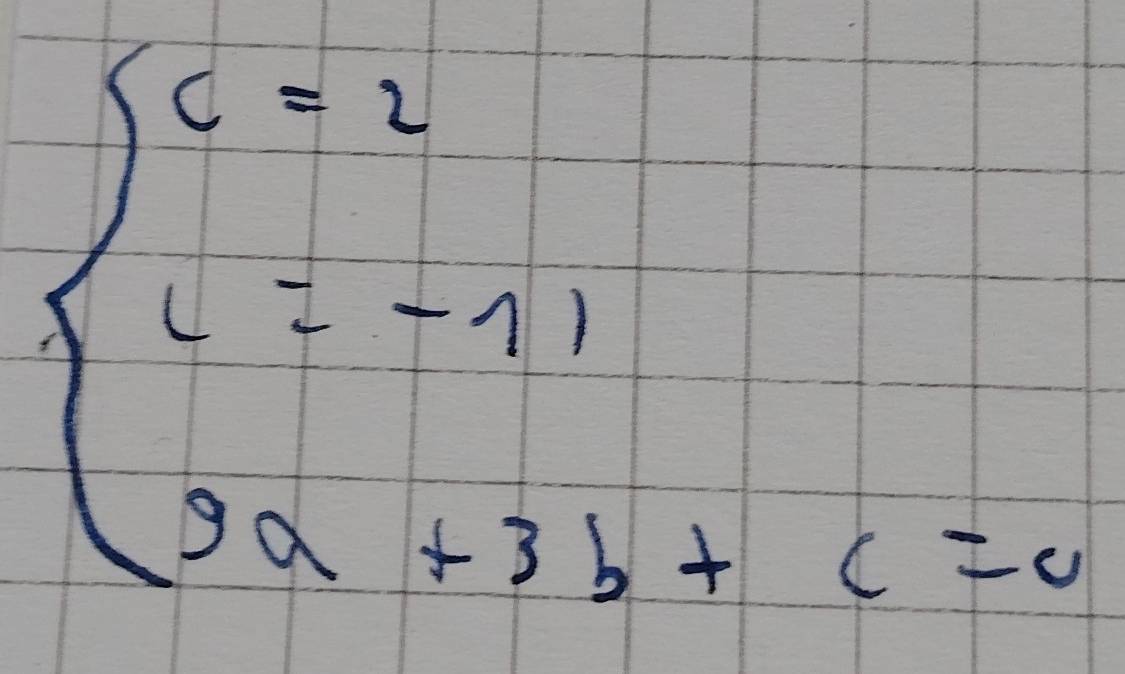 c = 2
c = -11
9a + 3b + c = 0